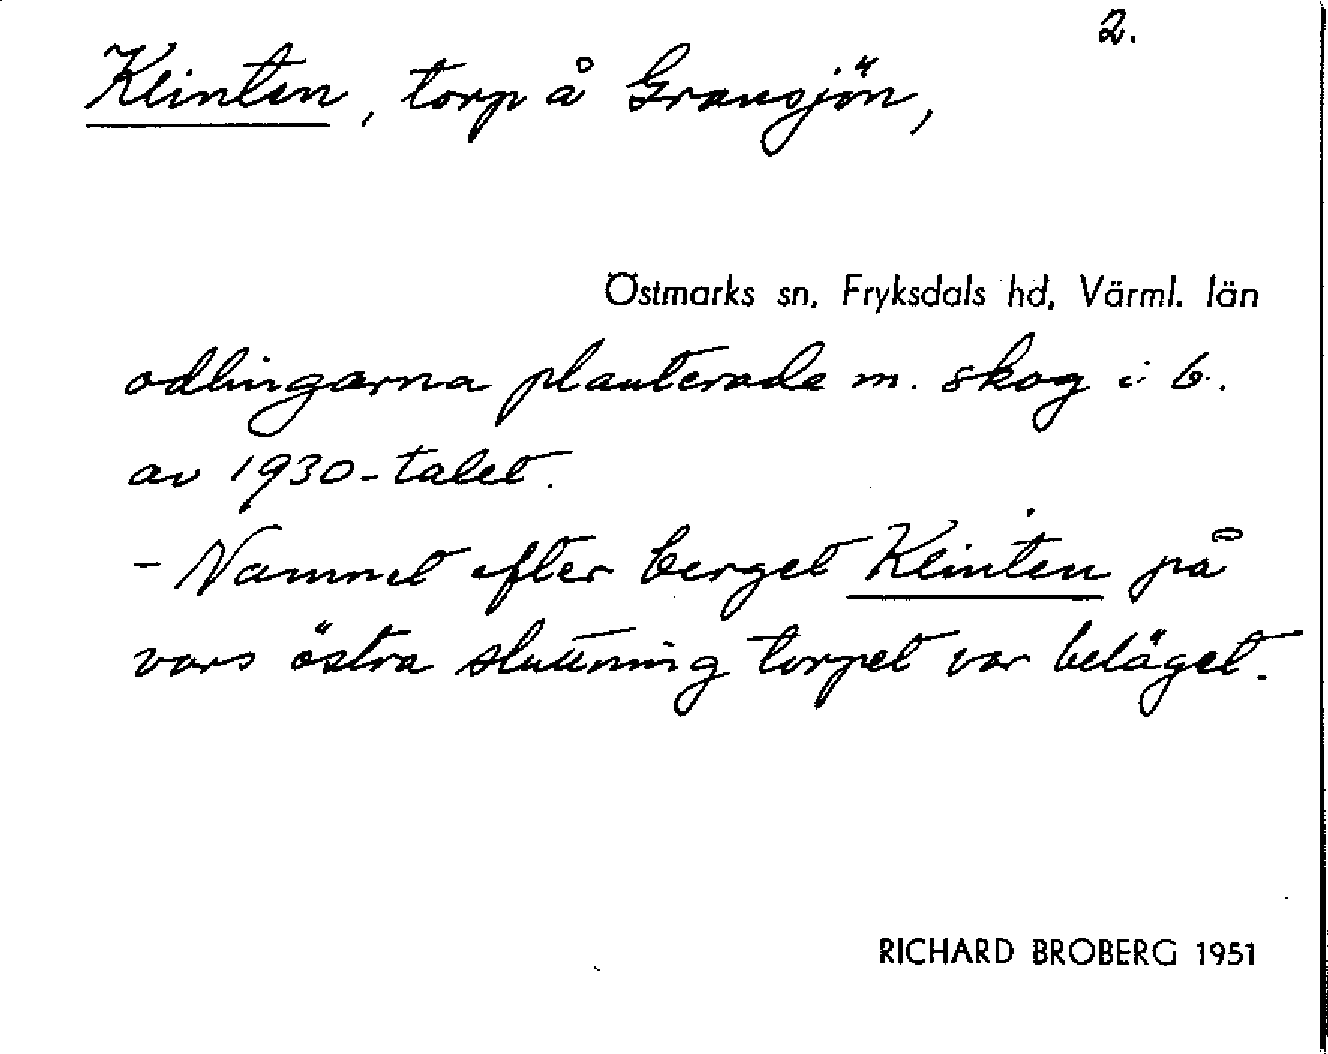 2.
Klinten, torp å Gransjön,
Östmarks sn, Fryksdals hd, Värml. län
odlingarna planterade m. skog i b.
av 1930-talet.
- Namnet efter berget Klinten på
vars östra sluttning torpet var beläget.
RICHARD BROBERG 1951